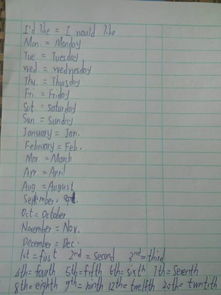 I'd like = I would like
Mon = Monday
Tue = Tuesday
Wed = Wednesday
Thu = Thursd
Fri = Friday
Sat = Saturday
Sun = Sunday
January = Jan.
February = Feb.
Mar = March
Apr = Apri
Aug = August
September =
Oct = October
November = Nov.
December = Dec.
1st = first 2nd = second 3rd = third
4th = fourth 5th = fifth 6th = sixth 7th = Seventh
8th = eighth 9th = ninth 12the twelfth 20the twentith